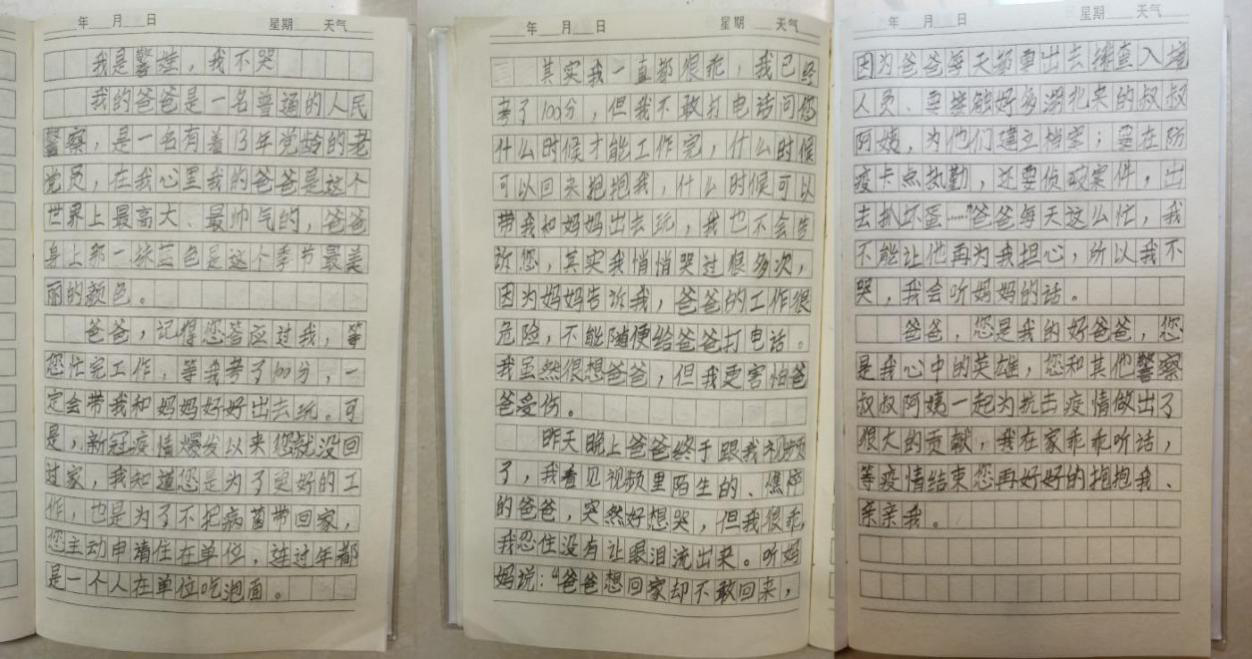 年 月 日 星期 天气
我是警娃，我不哭
我的爸爸是一名普通的人民
警察，是一名有着13年党龄的老
党员，在我心里我的爸爸是这个
世界上最高大、最帅气的，爸爸
身上那一抹蓝色是这个季节最美
丽的颜色。
爸爸，记得您答应过我，等
您忙完工作，等我考了100分，一
定会带我和妈妈好好出去玩。可
是，新冠疫情爆发以来您就没回
过家，我知道您是为了更好的工
作，也是为了不把病菌带回家，
您主动申请住在单位，连过年都
是一个人在单位吃泡面。
年 月 日 星期 天气
其实我一直都很乖，我已经
考了100分，但我不敢打电话问您
什么时候才能工作完，什么时候
可以回来抱抱我，什么时候可以
带我和妈妈出去玩，我也不会告
诉您，其实我悄悄哭过很多次，
因为妈妈告诉我，爸爸的工作很
危险，不能随便给爸爸打电话。
我虽然很想爸爸，但我更害怕爸
爸受伤。
昨天晚上爸爸终于跟我视频
了，我看见视频里陌生的、憔悴
的爸爸，突然好想哭，但我很乖，
我忍住没有让眼泪流出来。听妈
妈说：“爸爸想回家却不敢回来，
年 月 日 星期 天气
因为爸爸每天都要出去排查入境
人员、要接触好多湖北来的叔叔
阿姨，为他们建立档案；要在防
疫卡点执勤，还要侦破案件，出
去抓坏蛋……”爸爸每天这么忙，我
不能让他再为我担心，所以我不
哭，我会听妈妈的话。
爸爸，您是我的好爸爸，您
是我心中的英雄，您和其他警察
叔叔阿姨一起为抗击疫情做出了
很大的贡献，我在家乖乖听话，
等疫情结束您再好好的抱抱我、
亲亲我。